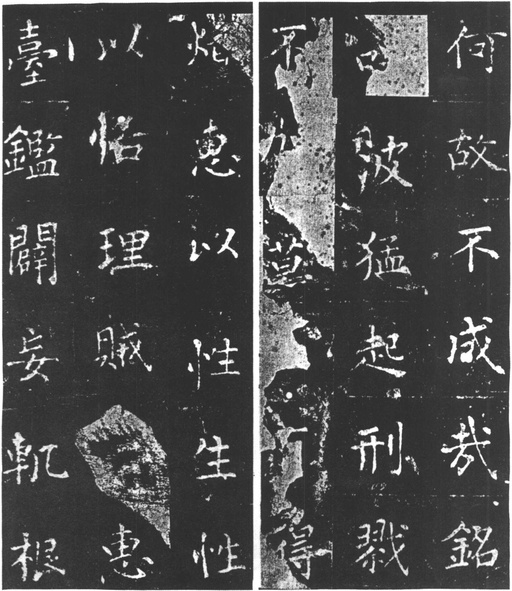 何故不成哉銘
波猛起刑戮
不莫得
惠以性生性
以恬理賊惠
臺鑑闢妄軌根